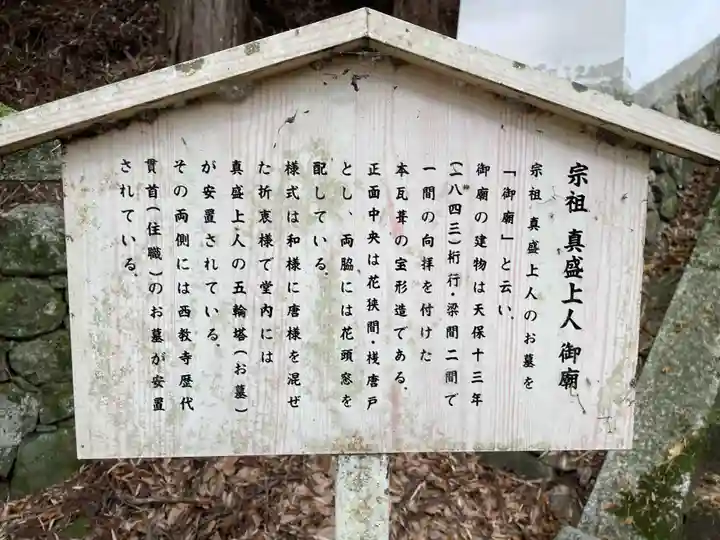 宗祖 真盛上人 御廟
宗祖 真盛上人のお墓を
「御廟」と云い、
御廟の建物は天保十三年
(一八四三)桁行・梁間二間で
一間の向拝を付けた
本瓦葺の宝形造である。
正面中央は花狭間・桟唐戸
とし、両脇には花頭窓を
配している。
様式は和様に唐様を混ぜ
た折衷様で堂内には
真盛上人の五輪塔(お墓)
が安置されている。
その両側には西教寺歴代
貫首(住職)のお墓が安置
されている。